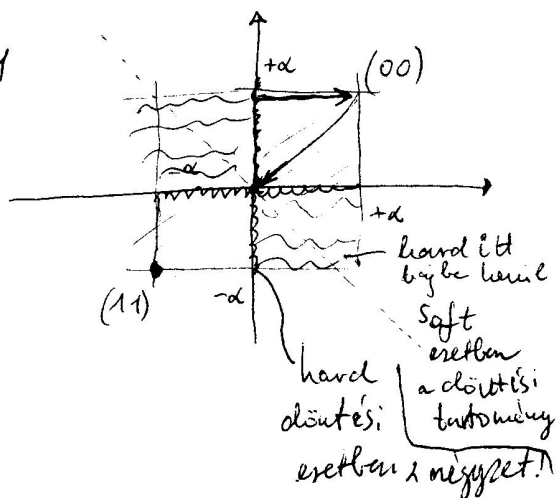 +α
(00)
-α
+α
(11)
-α
hard itt
bajba kerül
Soft
esetben
a döntési
tartomány
hard
döntési
esetben 2 négyzet!